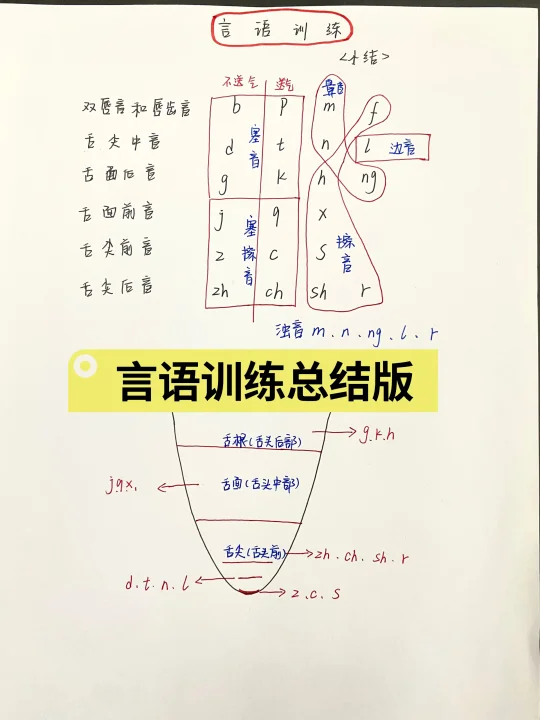 言语训练
<小结>
不送气 送气 鼻音
双唇音和唇齿音 b p m f
塞音
舌尖中音 d t n l 边音
舌面后音 g k h ng
舌面前音 j q x
塞擦音 擦音
舌尖前音 z c s
舌尖后音 zh ch sh r
浊音 m、n、ng、l、r
言语训练总结版
舌根(舌头后部) g.k.h
j.q.x. 舌面(舌头中部)
舌尖(舌头前) zh.ch.sh.r
d.t.n.l
z.c.s